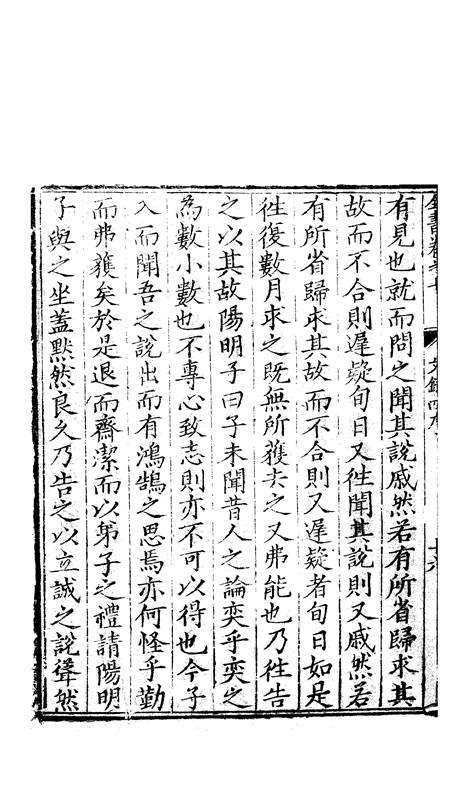 有見也就而問之聞其說戚然若有所省歸求其
故而不合則遲疑旬日又徃聞其說則又戚然若
有所省歸求其故而不合則又遲疑者旬日如是
徃復數月求之既無所獲去之又弗能也乃徃告
之以其故陽明子曰子未聞昔人之論奕乎奕之
為數小數也不專心致志則亦不可以得也今子
入而聞吾之說出而有鴻鵠之思焉亦何怪乎勤
而弗獲矣於是退而齋潔而以弟子之禮請陽明
子與之坐蓋黙然良久乃告之以立誠之說聳然